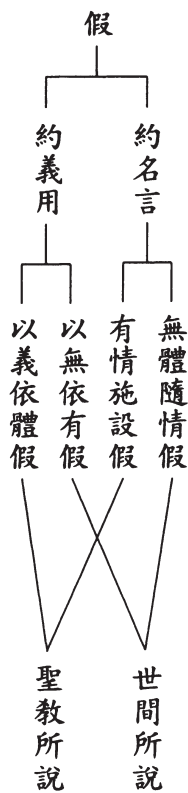 假
約名言
約義用
無體隨情假
有情施設假
以無依有假
以義依體假
世間所說
聖教所說